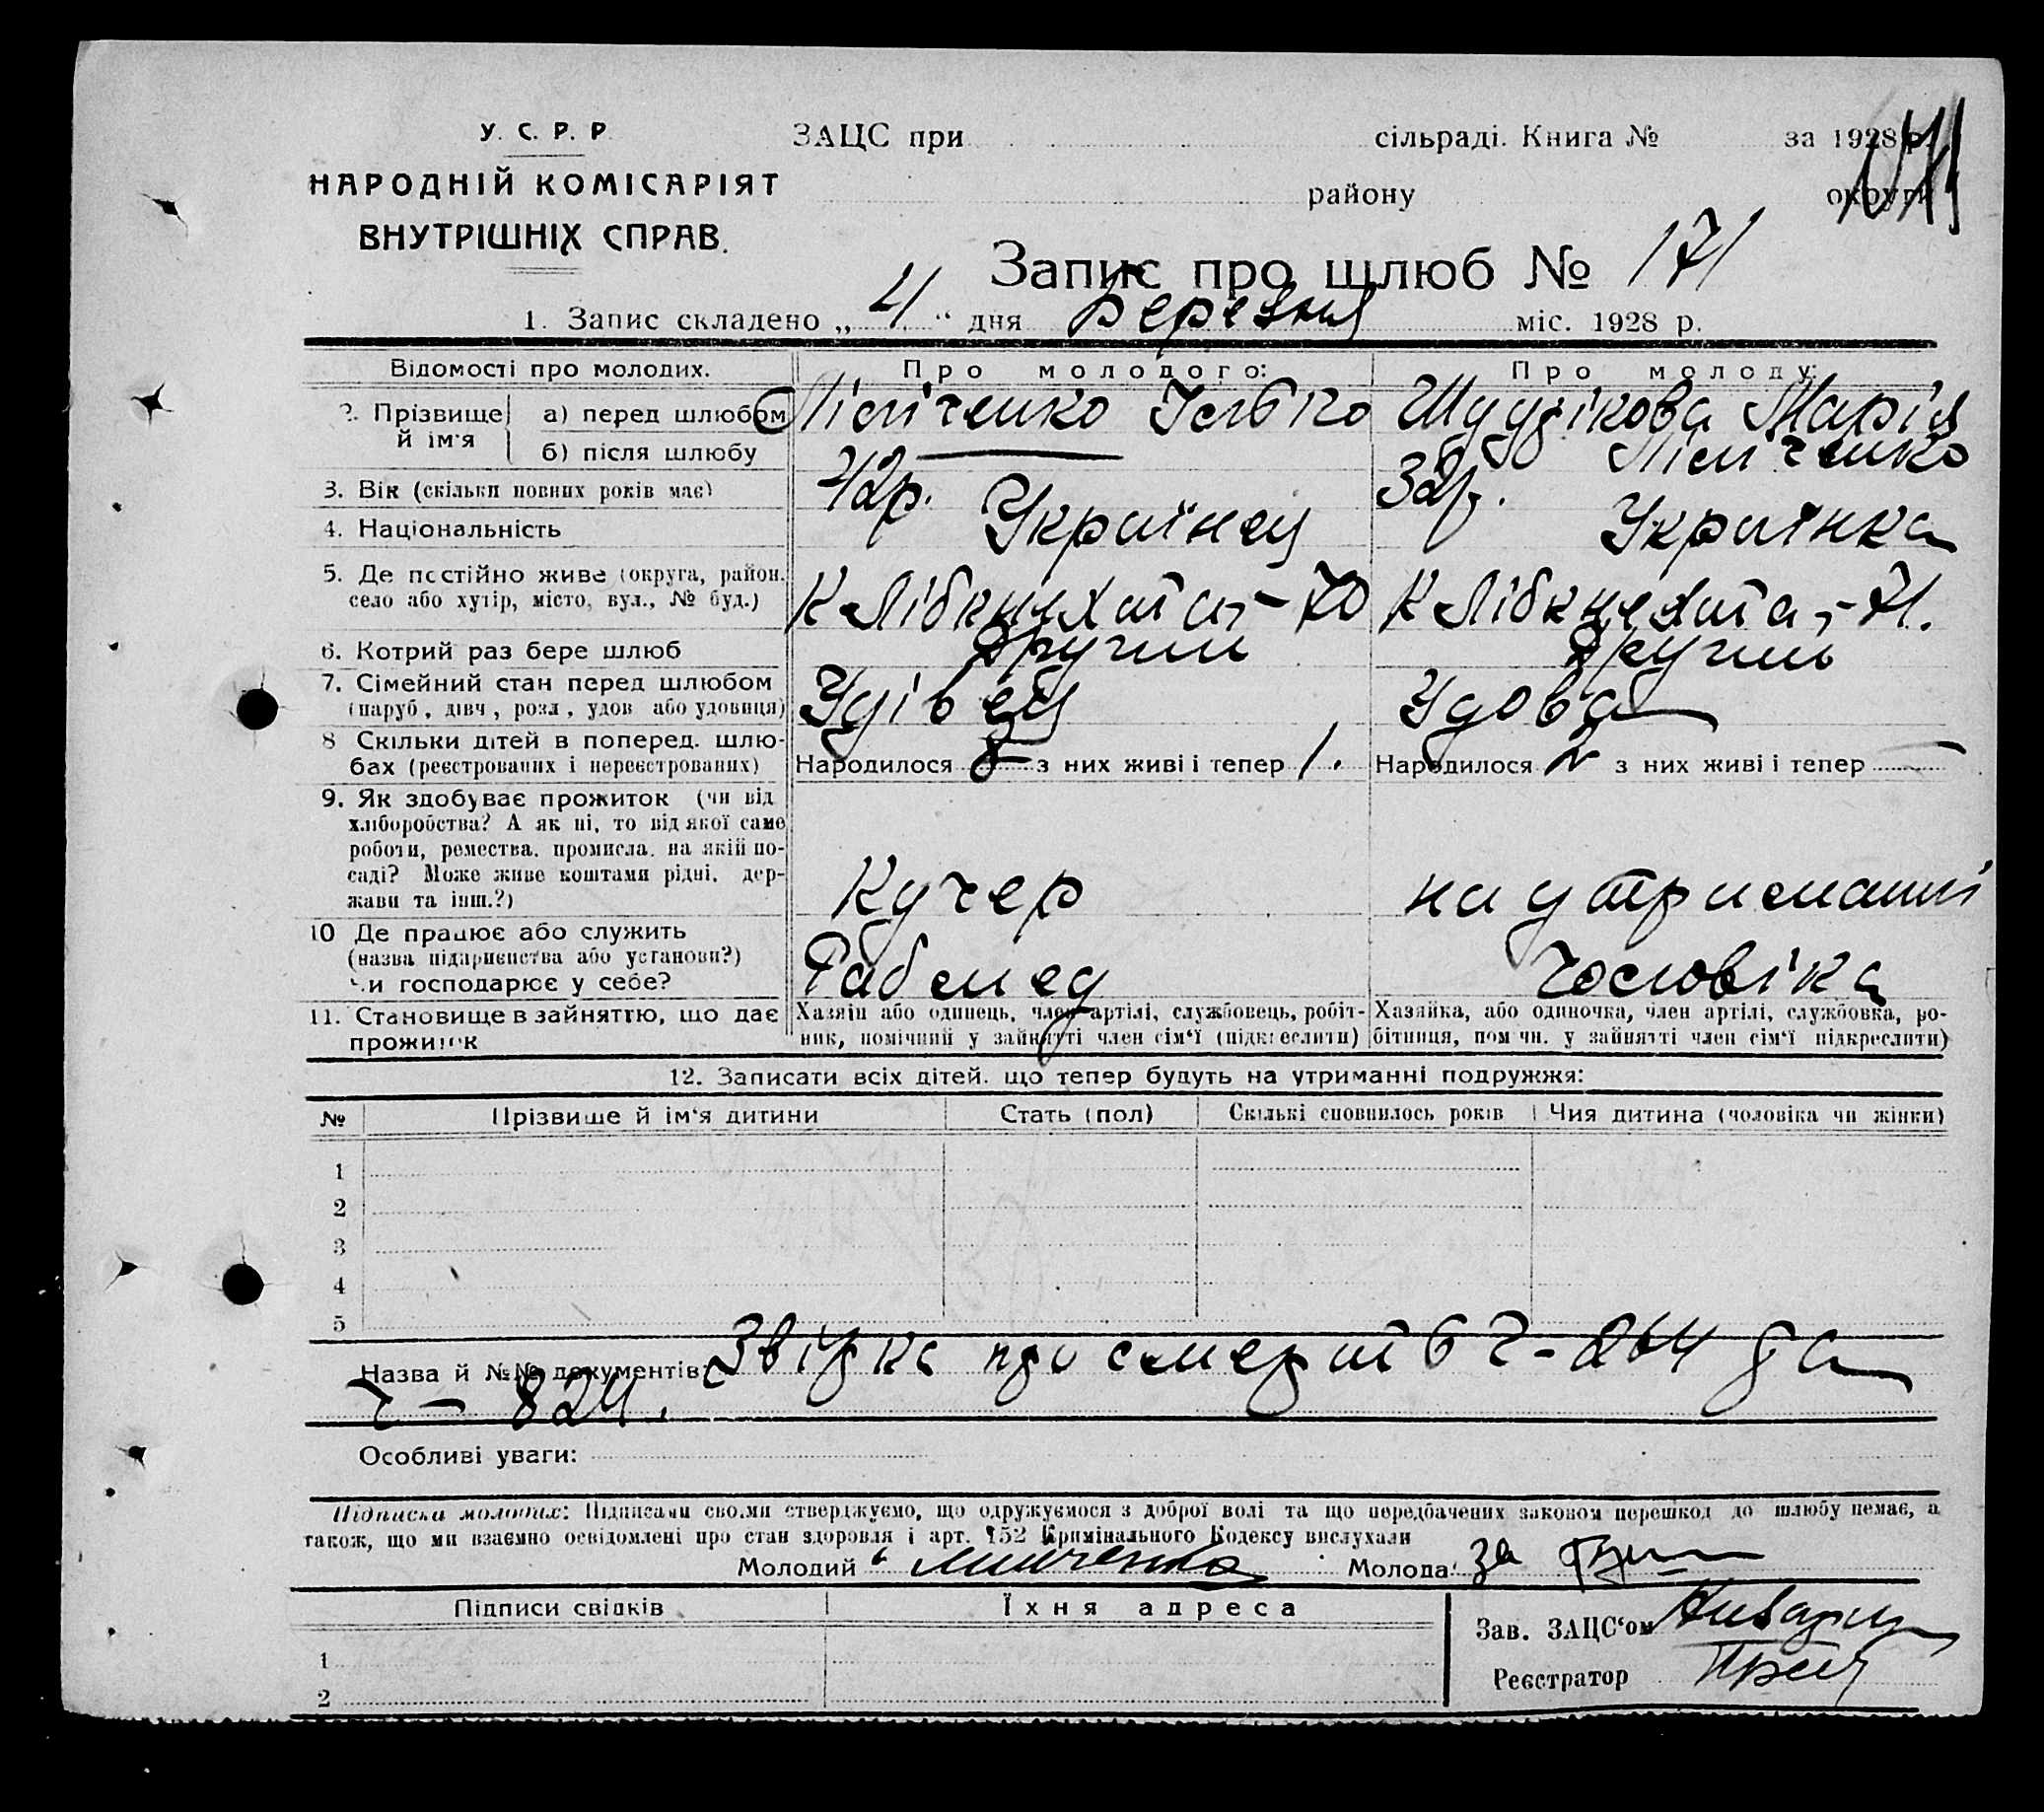 У. С. Р. Р.
НАРОДНІЙ КОМІСАРІЯТ
ВНУТРІШНІХ СПРАВ.
ЗАЦС при сільраді. Книга № за 1928 р.
району округи
Запис про шлюб № 171
1. Запис складено „ 4 “ дня Березня міс. 1928 р.
Відомості про молодих. Про молодого: Про молоду:
2. Прізвище й ім'я а) перед шлюбом Лісіченко Ілько Марія
б) після шлюбу Лісіченко
3. Вік (скільки повних років має) 42р. 32р.
4. Національність Українец Українка
5. Де постійно живе (округа, район, К Лібкнехта – 70 К Лібкнехта, – 71.
село або хутір, місто, вул., № буд.)
6. Котрий раз бере шлюб другий другий
7. Сімейний стан перед шлюбом Удівец Удова
(паруб., дівч., розл., удов. або удовиця)
8 Скільки дітей в поперед. шлю-
бах (реєстрованих і нереєстрованих) Народилося 8 з них живі і тепер 1. Народилося 2 з них живі і тепер —
9. Як здобуває прожиток (чи від
хліборобства? А як ні, то від якої саме
роботи, ремества, промисла, на якій по-
саді? Може живе коштами рідні, дер-
жави та інш.?) Кучер на утриманні
10 Де працює або служить
(назва підприємства або установи?) Рабмед Чоловіка
чи господарює у себе?
11. Становище в зайняттю, що дає Хазяїн або одинець, член артілі, службовець, робіт- Хазяйка, або одиночка, член артілі, службовка, ро-
прожиток ник, помічний у зайнятті член сім'ї (підкреслити) бітниця, помічн. у зайнятті член сім'ї підкреслити)
12. Записати всіх дітей, що тепер будуть на утриманні подружжя:
№ Прізвище й ім'я дитини Стать (пол) Скількі сповнилось років Чия дитина (чоловіка чи жінки)
1
2
3
4
5
Назва й №№ документів: Звідка про смерть ч – 264 да
ч – 824.
Особливі уваги:
Підписи молодих: Підписами своїми стверджуємо, що одружуємося з доброї волі та що передбачених законом перешкод до шлюбу немає, а
також, що ми взаємно освідомлені про стан здоровля і арт. 152 Кримінального Кодексу вислухали
Молодий Молода: За
Підписи свідків Їхня адреса
Зав. ЗАЦС'ом
1
Реєстратор
2